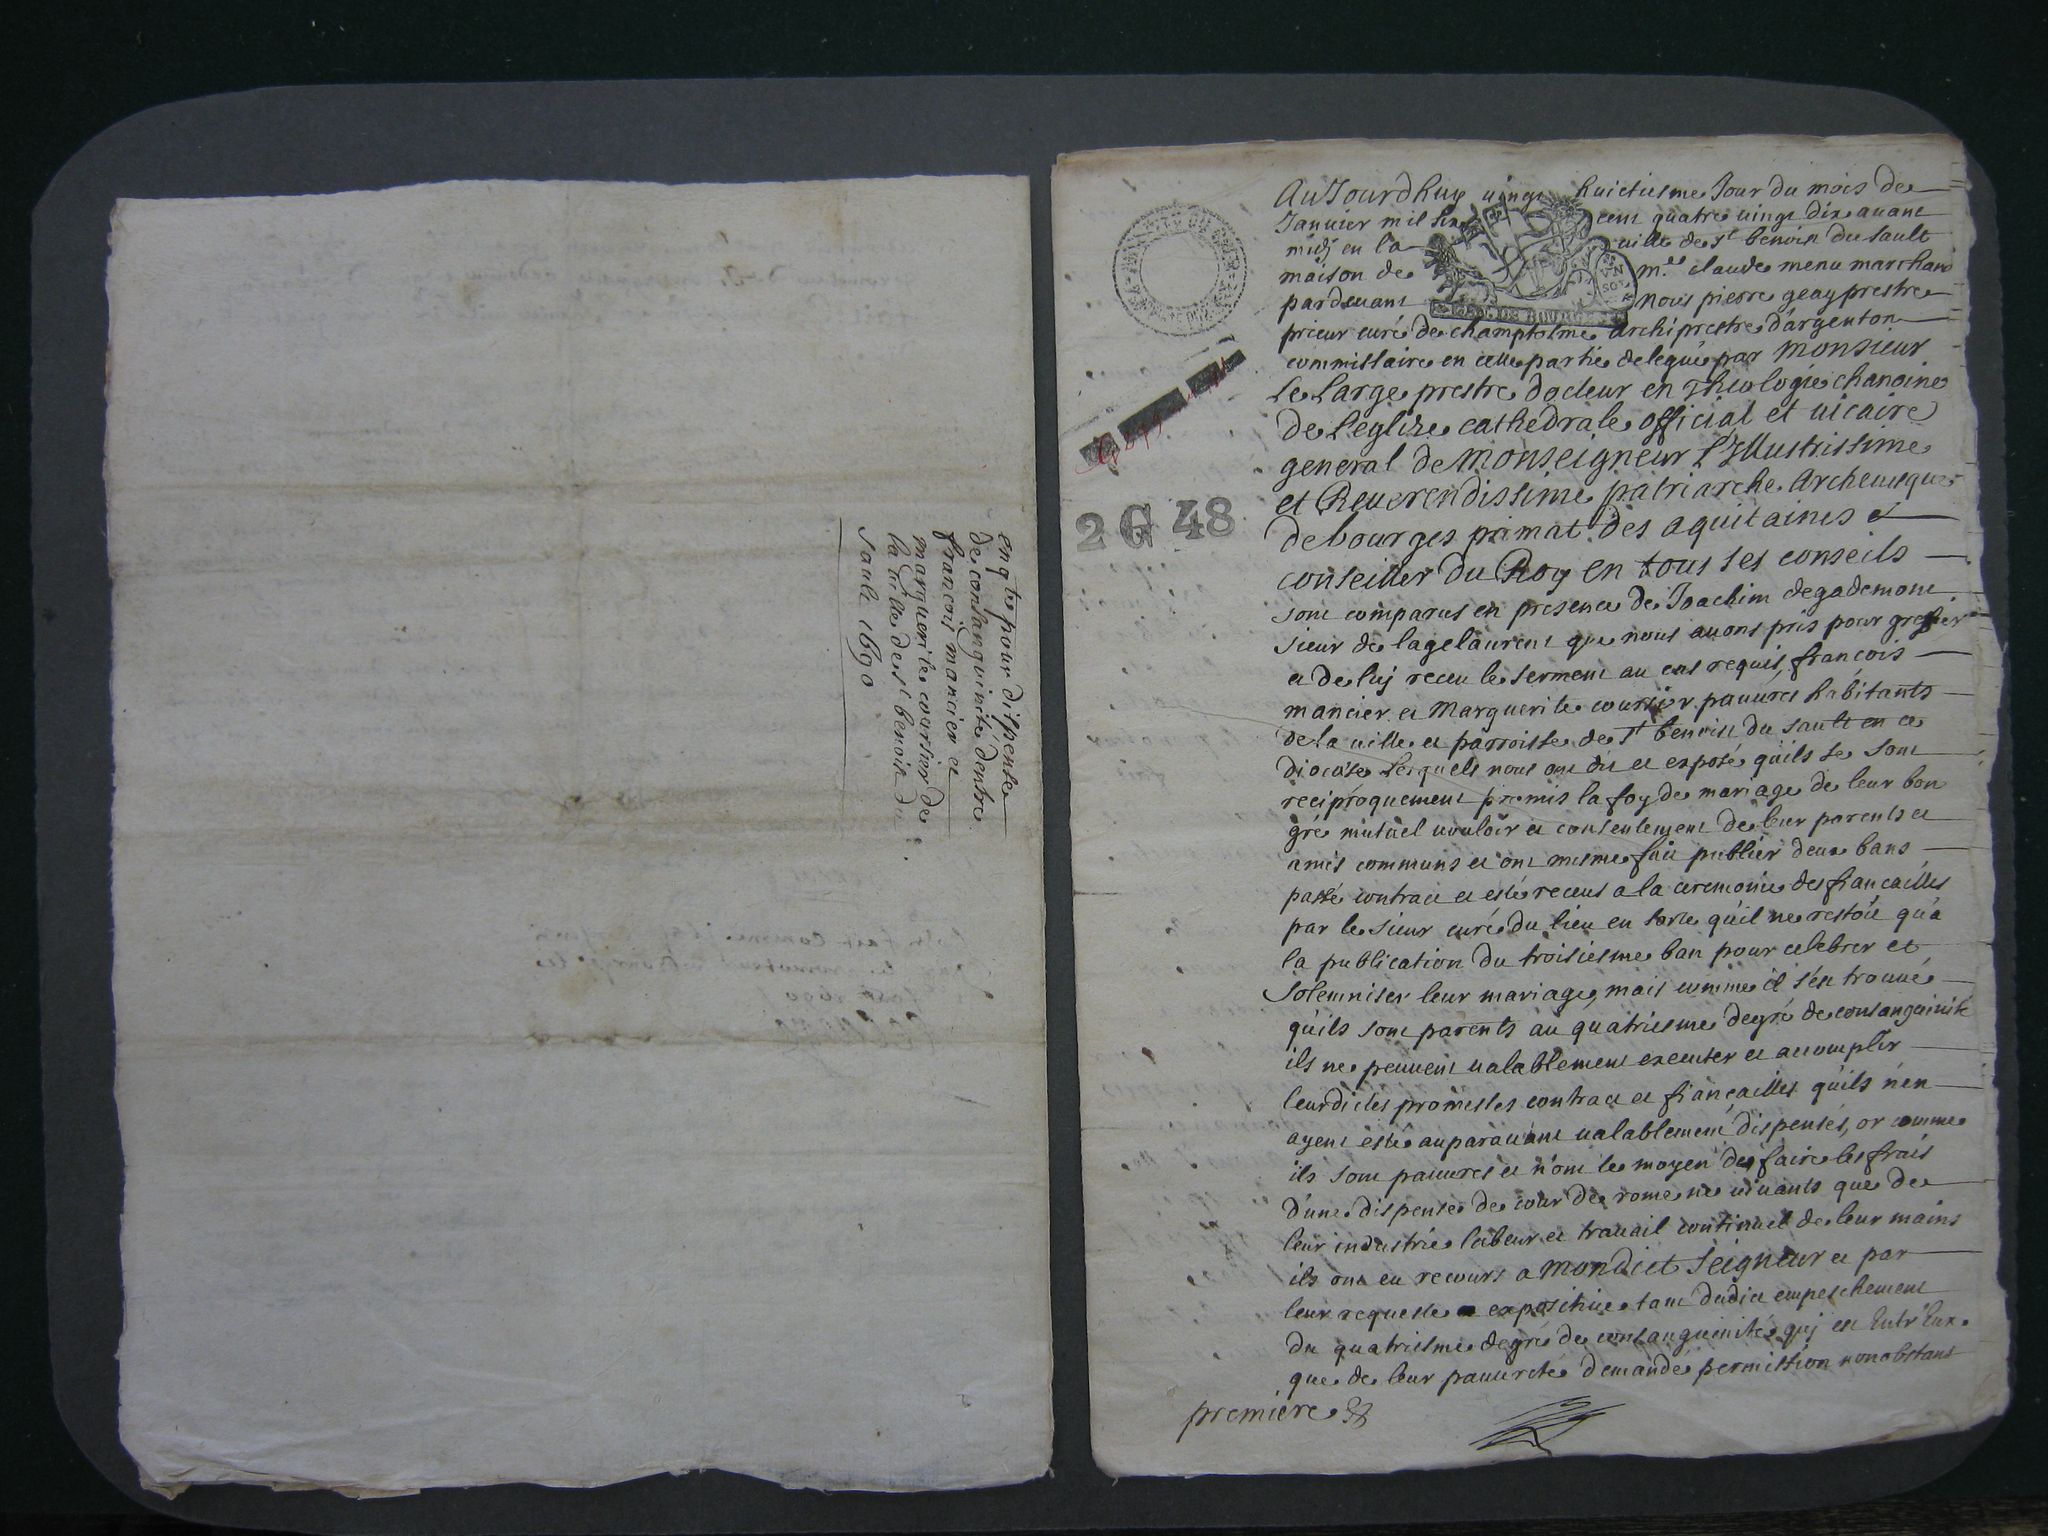 enq.te pour dispense
de consanguinité d'entre
francois mancier et
marguerite coursier de
la ville de st benoit du
sault 1690
AuJourdhuy vingt huictiesme Jour du mois de
Januier mil six cent quatre vingt dix auant
midj en la ville de st benoist du sault
maison de m.re claude menu marchand
pardeuant nous pierre geay prestre
prieur curé de champtosme archiprestre d'argenton
commissaire en celle partie delegué par Monsieur
Le Large prestre docteur en Theologie chanoine
de L'eglize cathedrale official et vicaire
general de Monseigneur L'Illustrissime
et Reuerendissime patriarche Archeuesque
de bourges primat des aquitaines et
conseiller du Roy en tous ses conseils
sont comparus en presence de Joachim degademont
sieur de lagelaurent que nous auons pris pour greffier
et de luj receu le serment au cas requis, francois
mancier et Marguerite coursier pauures habitants
de la ville et parroisse de st benoist du sault en ce
diocése Lesquels nous ont dit et exposé qu'ils se sont
reciproquement promis la foy de mariage de leur bon
gré mutuel vouloir et consentement de leur parents et
amis communs et ont mesme fait publier deux bans
passé contract et esté receus a la ceremonie des fiancailles
par le sieur curé du lieu en sorte qu'il ne restoit qu'a
la publication du troisiesme ban pour celebrer et
solemniser leur mariage, mais comme il s'est trouué
qu'ils sont parents au quatriesme degré de consanguinité
ils ne peuuent valablement executer et accomplir
leurdictes promesses contract et fiançailles qu'ils n'en
ayent esté auparauant valablement dispensés, or comme
ils sont pauures et n'ont le moyen de faire les frais
d'une dispense de cour de rome ne viuants que de
leur industrie labeur et trauail continuel de leur mains
ils ont eu recours a Mondict Seigneur et par
leur requeste expositiue tant dudict empeschement
du quatriesme degré de consanguinité quj est Entr'Eux
que de leur pauureté demandé permission nonobstant
premiere
2 G 48